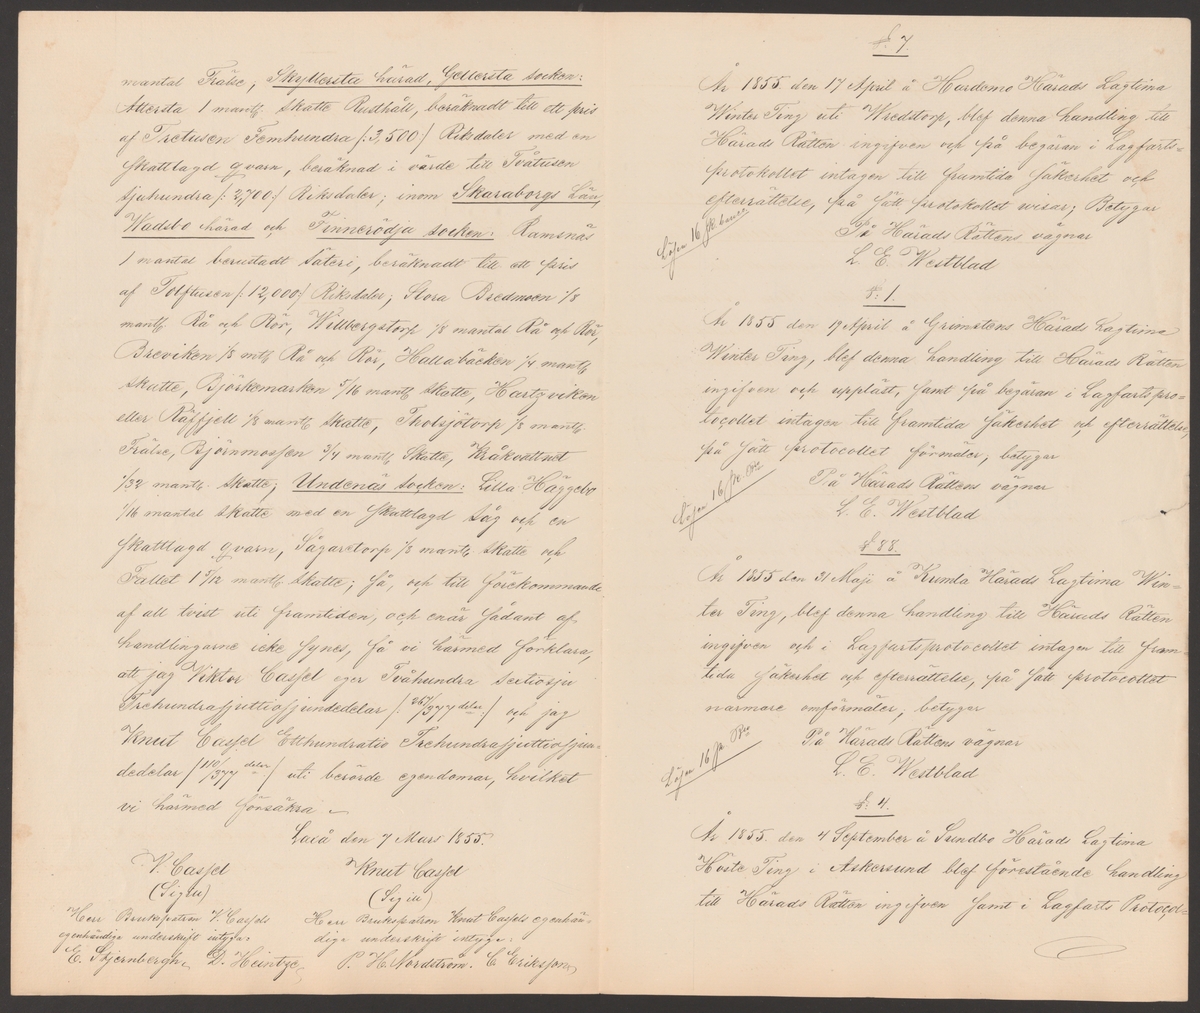 mantal Frälse; Skyllersta härad, Gellersta socken:
Attersta 1 mantl skatte Rusthåll, beräknadt till ett pris
af Tretusen Femhundra /: 3,500 :/ Riksdaler med en
skattlagd qvarn, beräknad i värde till Tvåtusen
sjuhundra /: 2,700 :/ Riksdaler; inom Skaraborgs Län,
Wadsbo härad och Finnerödja socken: Ramsnäs
1 mantal berustadt säteri, beräknadt till ett pris
af Tolftusen /: 12,000 :/ Riksdaler; Stora Bredmoen 1/8
mantl Rå och Rör, Willbergstorp 1/8 mantal Rå och Rör,
Breviken 1/8 mtl Rå och Rör, Hallabäcken 1/4 mantl
skatte, Björkemarken 5/16 mantl skatte, Hartzviken
eller Räffjell 1/8 mantl skatte, Tholsjötorp 1/8 mantl
Frälse, Björnmossen 3/4 mantl Skatte, Kråkvattnet
1/32 mantl skatte; Undenäs socken: Lilla Häggebo
1/16 mantal skatte med en skattlagd såg och en
skattlagd qvarn, Sågaretorp 1/8 mantl skatte och
Fallet 1 5/12 mantl skatte; så, och till förekommande
af all tvist uti framtiden, och enär sådant af
handlingarne icke synes, få vi härmed förklara,
att jag Viktor Cassel eger Tvåhundra sextiosju
Trehundrasjuttiosjundedelar /: 267/377 delar :/ och jag
Knut Cassel Etthundratio Trehundrasjuttiosjun-
dedelar /110/377 delar/ uti berörde egendomar, hvilket
vi härmed försäkra.
Laxå den 7 Mars 1855.
V. Cassel Knut Cassel
(Sigill) (Sigill)
Herr Brukspatron V. Cassels Herr Brukspatron Knut Cassels egenhän-
egenhändiga underskrift intyga: diga underskrift intyga:
E. Stjernbergh. D. Heintze, P. H. Nordström. C. Erikson,
§. 7.
År 1855 den 17 April å Hardemo Härads Lagtima
Winter Ting uti Wredstorp, blef denna handling till
Härads Rätten ingifven och på begäran i Lagfarts-
protokollet intagen till framtida säkerhet och
efterrättelse, på sätt protokollet wisar; Betygar
På Härads Rättens vägnar
Lösen 16 sk banco
L. E. Westblad
§: 1.
År 1855 den 19 April å Grimstens Härads Lagtima
Winter Ting, blef denna handling till Härads Rätten
ingifven och uppläst, samt på begäran i Lagfartspro-
tocollet intagen till framtida säkerhet och efterrättelse,
på sätt protocollet förmäler; betygar
På Härads Rättens vägnar
Lösen 16 sk. Bco
L. E. Westblad
§ 88.
År 1855 den 31 Maji å Kumla Härads Lagtima Win-
ter Ting, blef denna handling till Härads Rätten
ingifven och i Lagfartsprotocollet intagen till fram-
tida säkerhet och efterrättelse, på sätt protocollet
närmare omförmäler; betygar
På Härads Rättens vägnar
Lösen 16 sk Bco
L. E. Westblad
§: 4.
År 1855 den 4 September å Sundbo Härads Lagtima
Höste Ting i Askersund blef förestående handling
till Härads Rätten ingifven samt i Lagfarts Protocol-